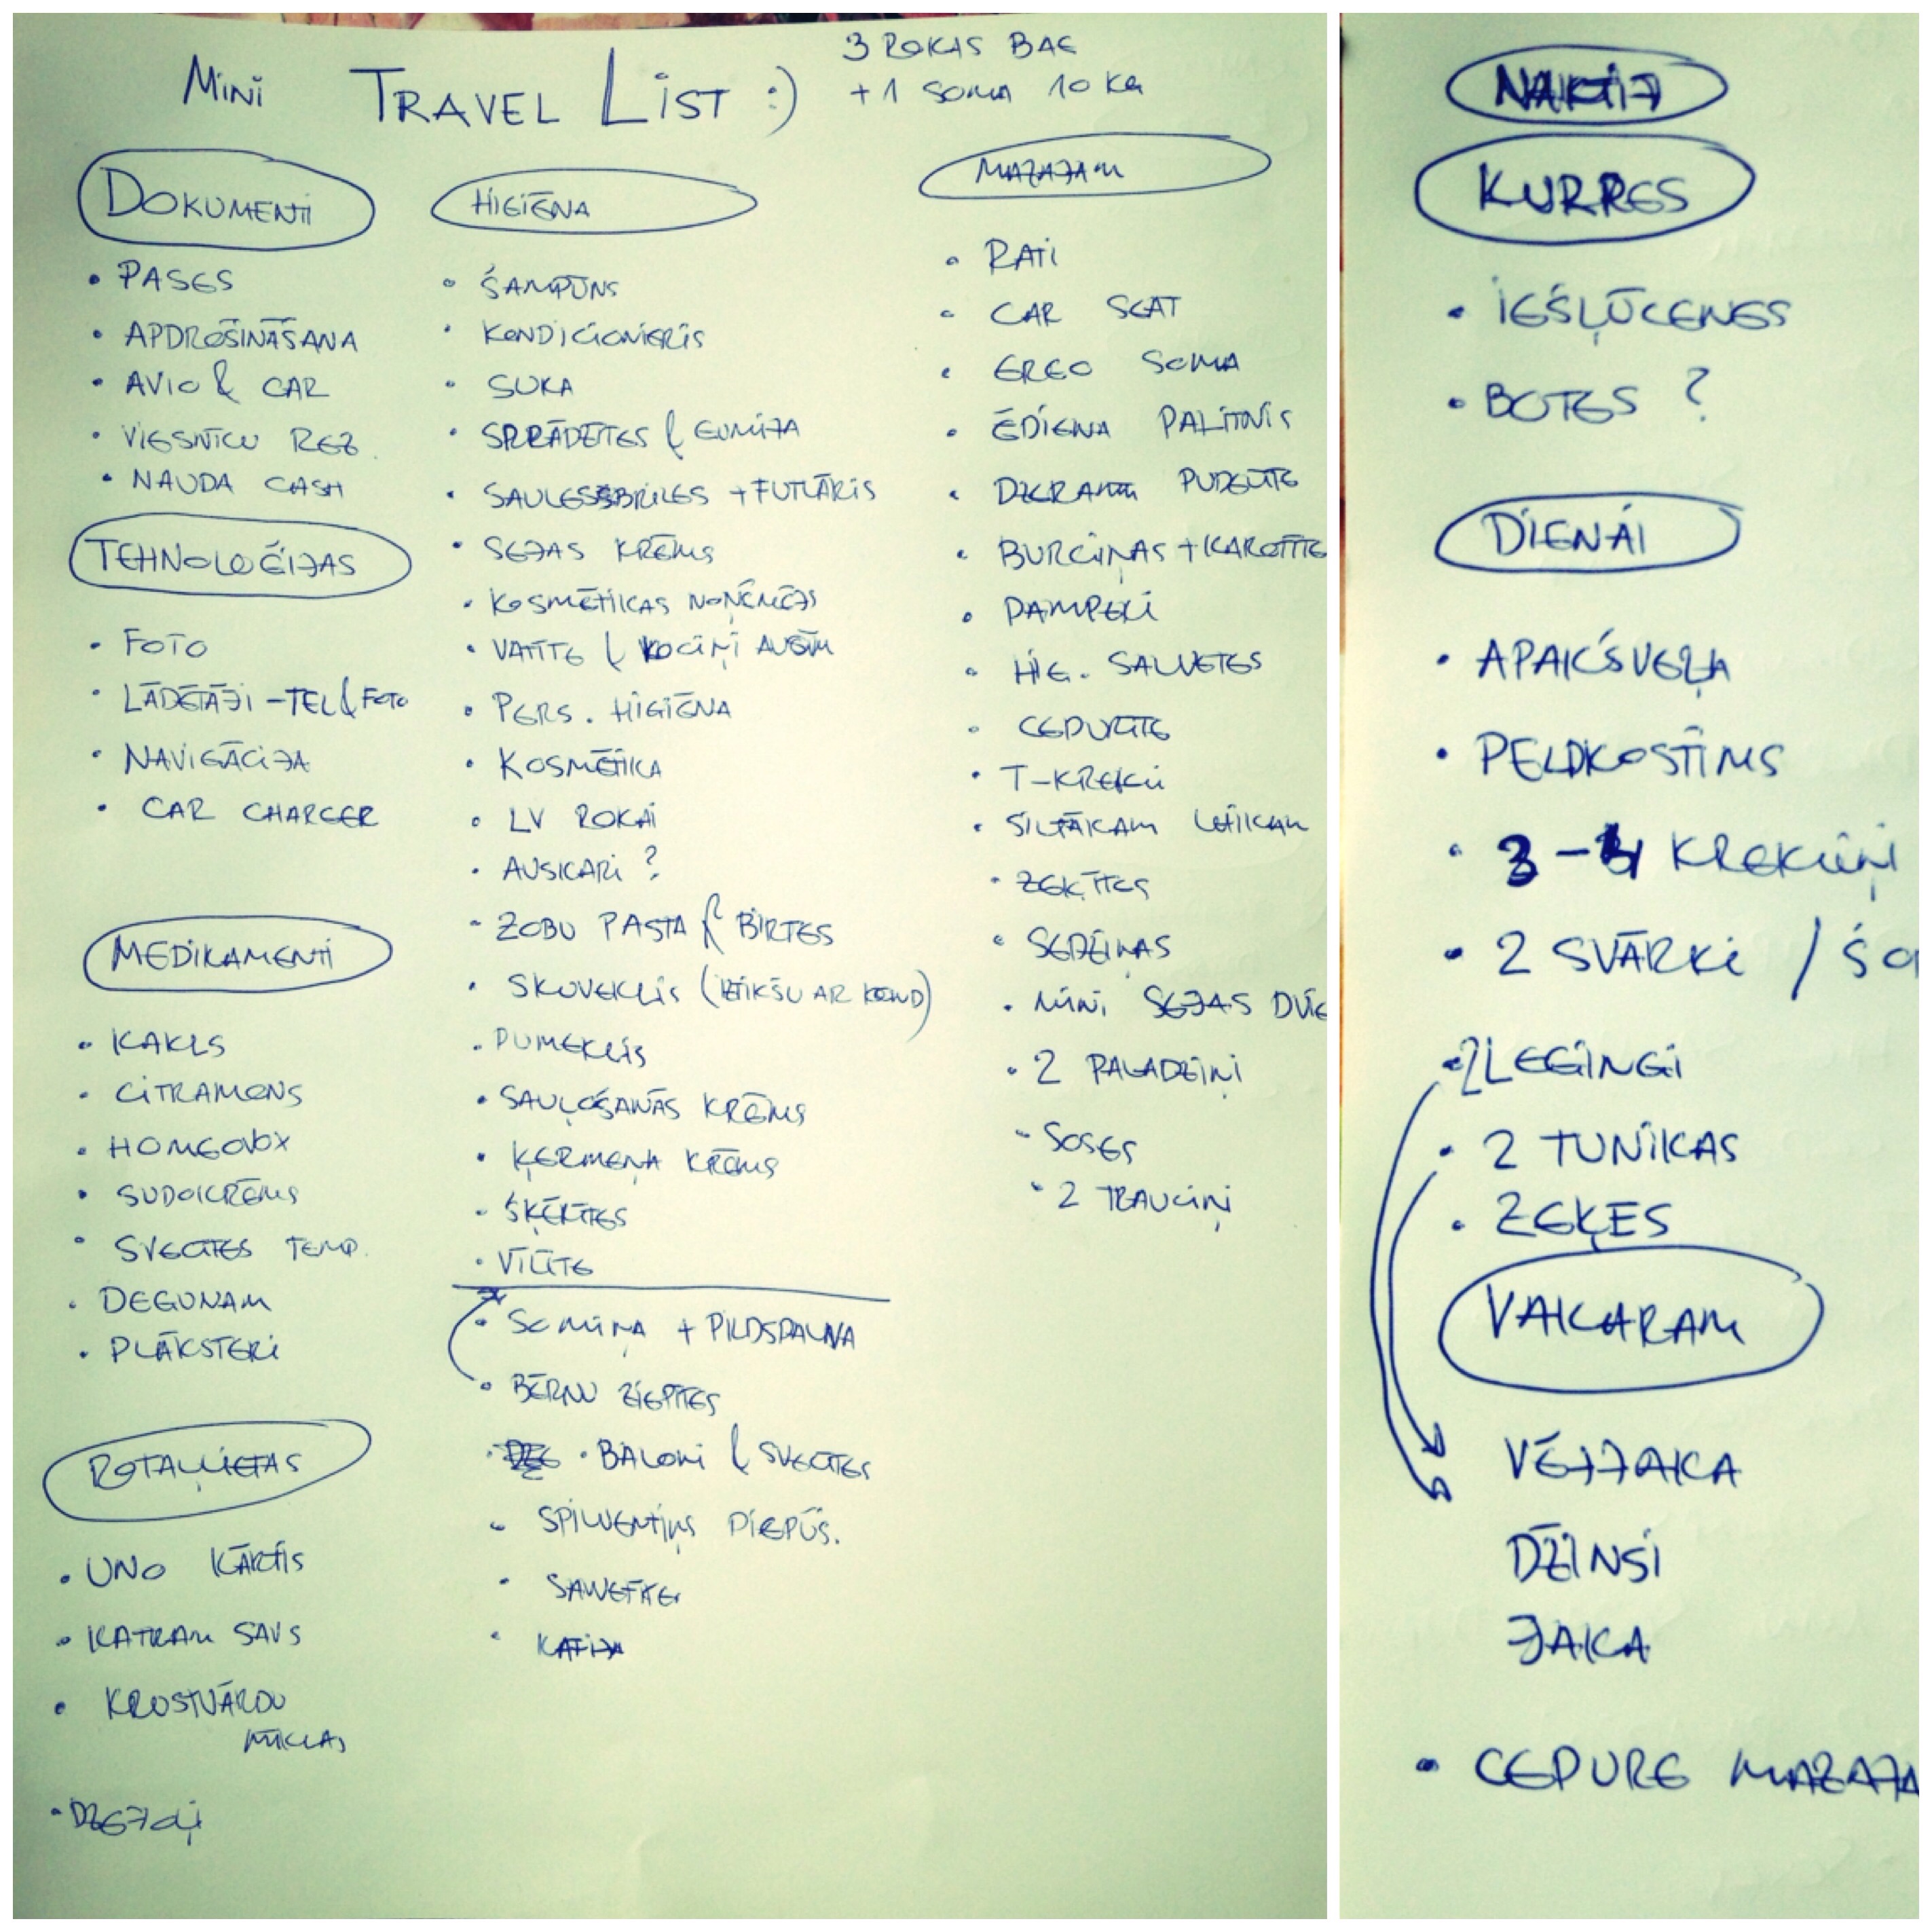 Mini TRAVEL LiST :)
3 ROKAS BAG
+ 1 SOMA 10 KG
DOKUMENTi
• PASES
• APDROŠINĀŠANA
• AVIO & CAR
• VIESNĪCU REZ.
• NAUDA CASH
TEHNOLOĢIJAS
• FOTO
• LĀDĒTĀJI - TEL & FOTO
• NAVIGĀCIJA
• CAR CHARGER
MEDIKAMENTI
• KAKLS
• CITRAMONS
• HOMEOVOX
• SUDOKRĒMS
• SVECĪTES TEMP.
• DEGUNAM
• PLĀKSTERI
ROTAĻLIETAS
• UNO KĀRTIS
• KATRAM SAVS
• KRUSTVĀRDU
MĪKLAS
HIGIĒNA
• ŠAMPŪNS
• KONDICIONIERIS
• SUKA
• SPRĀDZĪTES & GUMIJA
• SAULESBRILLES + FUTLĀRIS
• SEJAS KRĒMS
• KOSMĒTIKAS NOŅĒMĒJS
• VATĪTE & KOCIŅI AUSĪM
• PERS. HIGIĒNA
• KOSMĒTIKA
• LV ROKAI
• AUSKARI ?
• ZOBU PASTA & BIRTES
• SKUVEKLIS (IZTIKŠU AR KOND)
• PUMEKLIS
• SAUĻOŠANĀS KRĒMS
• ĶERMEŅA KRĒMS
• ŠĶĒRĪTES
• VĪLĪTE
• SOMIŅA + PILDSPALVA
• BĒRNU ZIEPĪTES
• BALONI & SVECĪTES
• SPILVENTIŅŠ PIEPŪŠ.
• SALVETES
MAZAJAM
• RATI
• CAR SEAT
• ERGO SOMA
• ĒDIENA PALIKTNIS
• DZERAMĀ PUDELĪTE
• BURCIŅAS + KAROTĪTE
• PAMPERI
• HIG. SALVETES
• CEPURĪTE
• T-KREKLI
• SILTĀKAM LAIKAM
• ZEĶĪTES
• SEDZIŅAS
• MINI SEJAS DVIE
• 2 PALADZIŅI
• 2 TRAUCIŅI
NAKTIJ
KURPES
• IEŠĻŪCENES
• BOTES ?
DIENĀI
• APAKŠVEĻA
• PELDKOSTĪMS
• 3-4 KREKLIŅI
• 2 SVĀRKI / ŠO
• 2 LEGINGI
• 2 TUNIKAS
• ZEĶES
VAKARAM
VĒJJAKA
DŽINSI
JAKA
• CEPURE MAZAJA